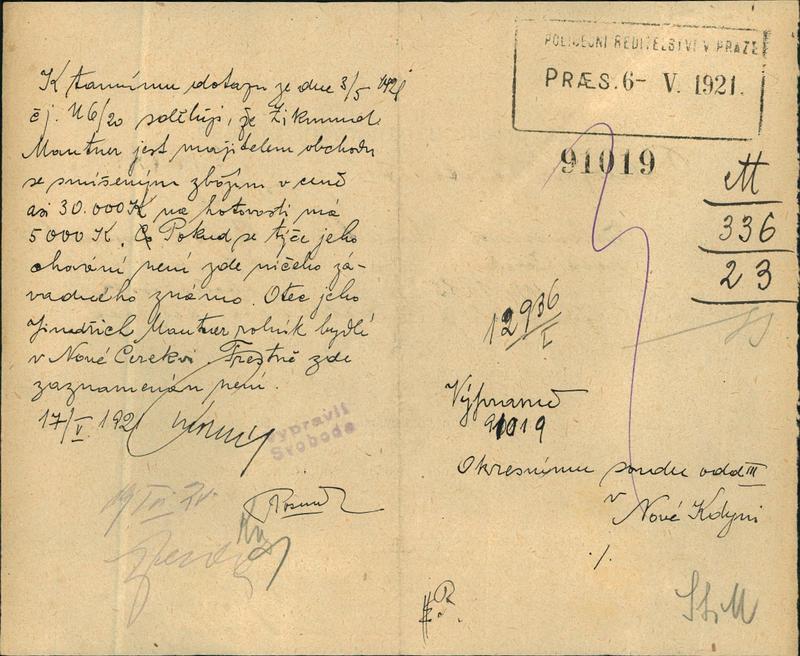 K tamnímu dotazu ze dne 3/5 1921
čj. U 6/20 sděluji, že Zikmund
Mautner jest majitelem obchodu
se smíšeným zbožím v ceně
asi 30.000 K na hotovosti má
5000 K. Pokud se týče jeho
chování není zde ničeho zá-
vadného známo. Otec jeho
Jindřich Mautner rolník bydlí
v Nové Cerekvi. Trestně zde
zaznamenán není.
17/V 1921
Vypravil
Svoboda
POLICEJNÍ ŘEDITELSTVÍ V PRAZE
PRÆS. 6- V. 1921.
91019
M
336
23
12936/I
Výpravně
91019
Okresnímu soudu odd III
v
Nové Kdyni
./.